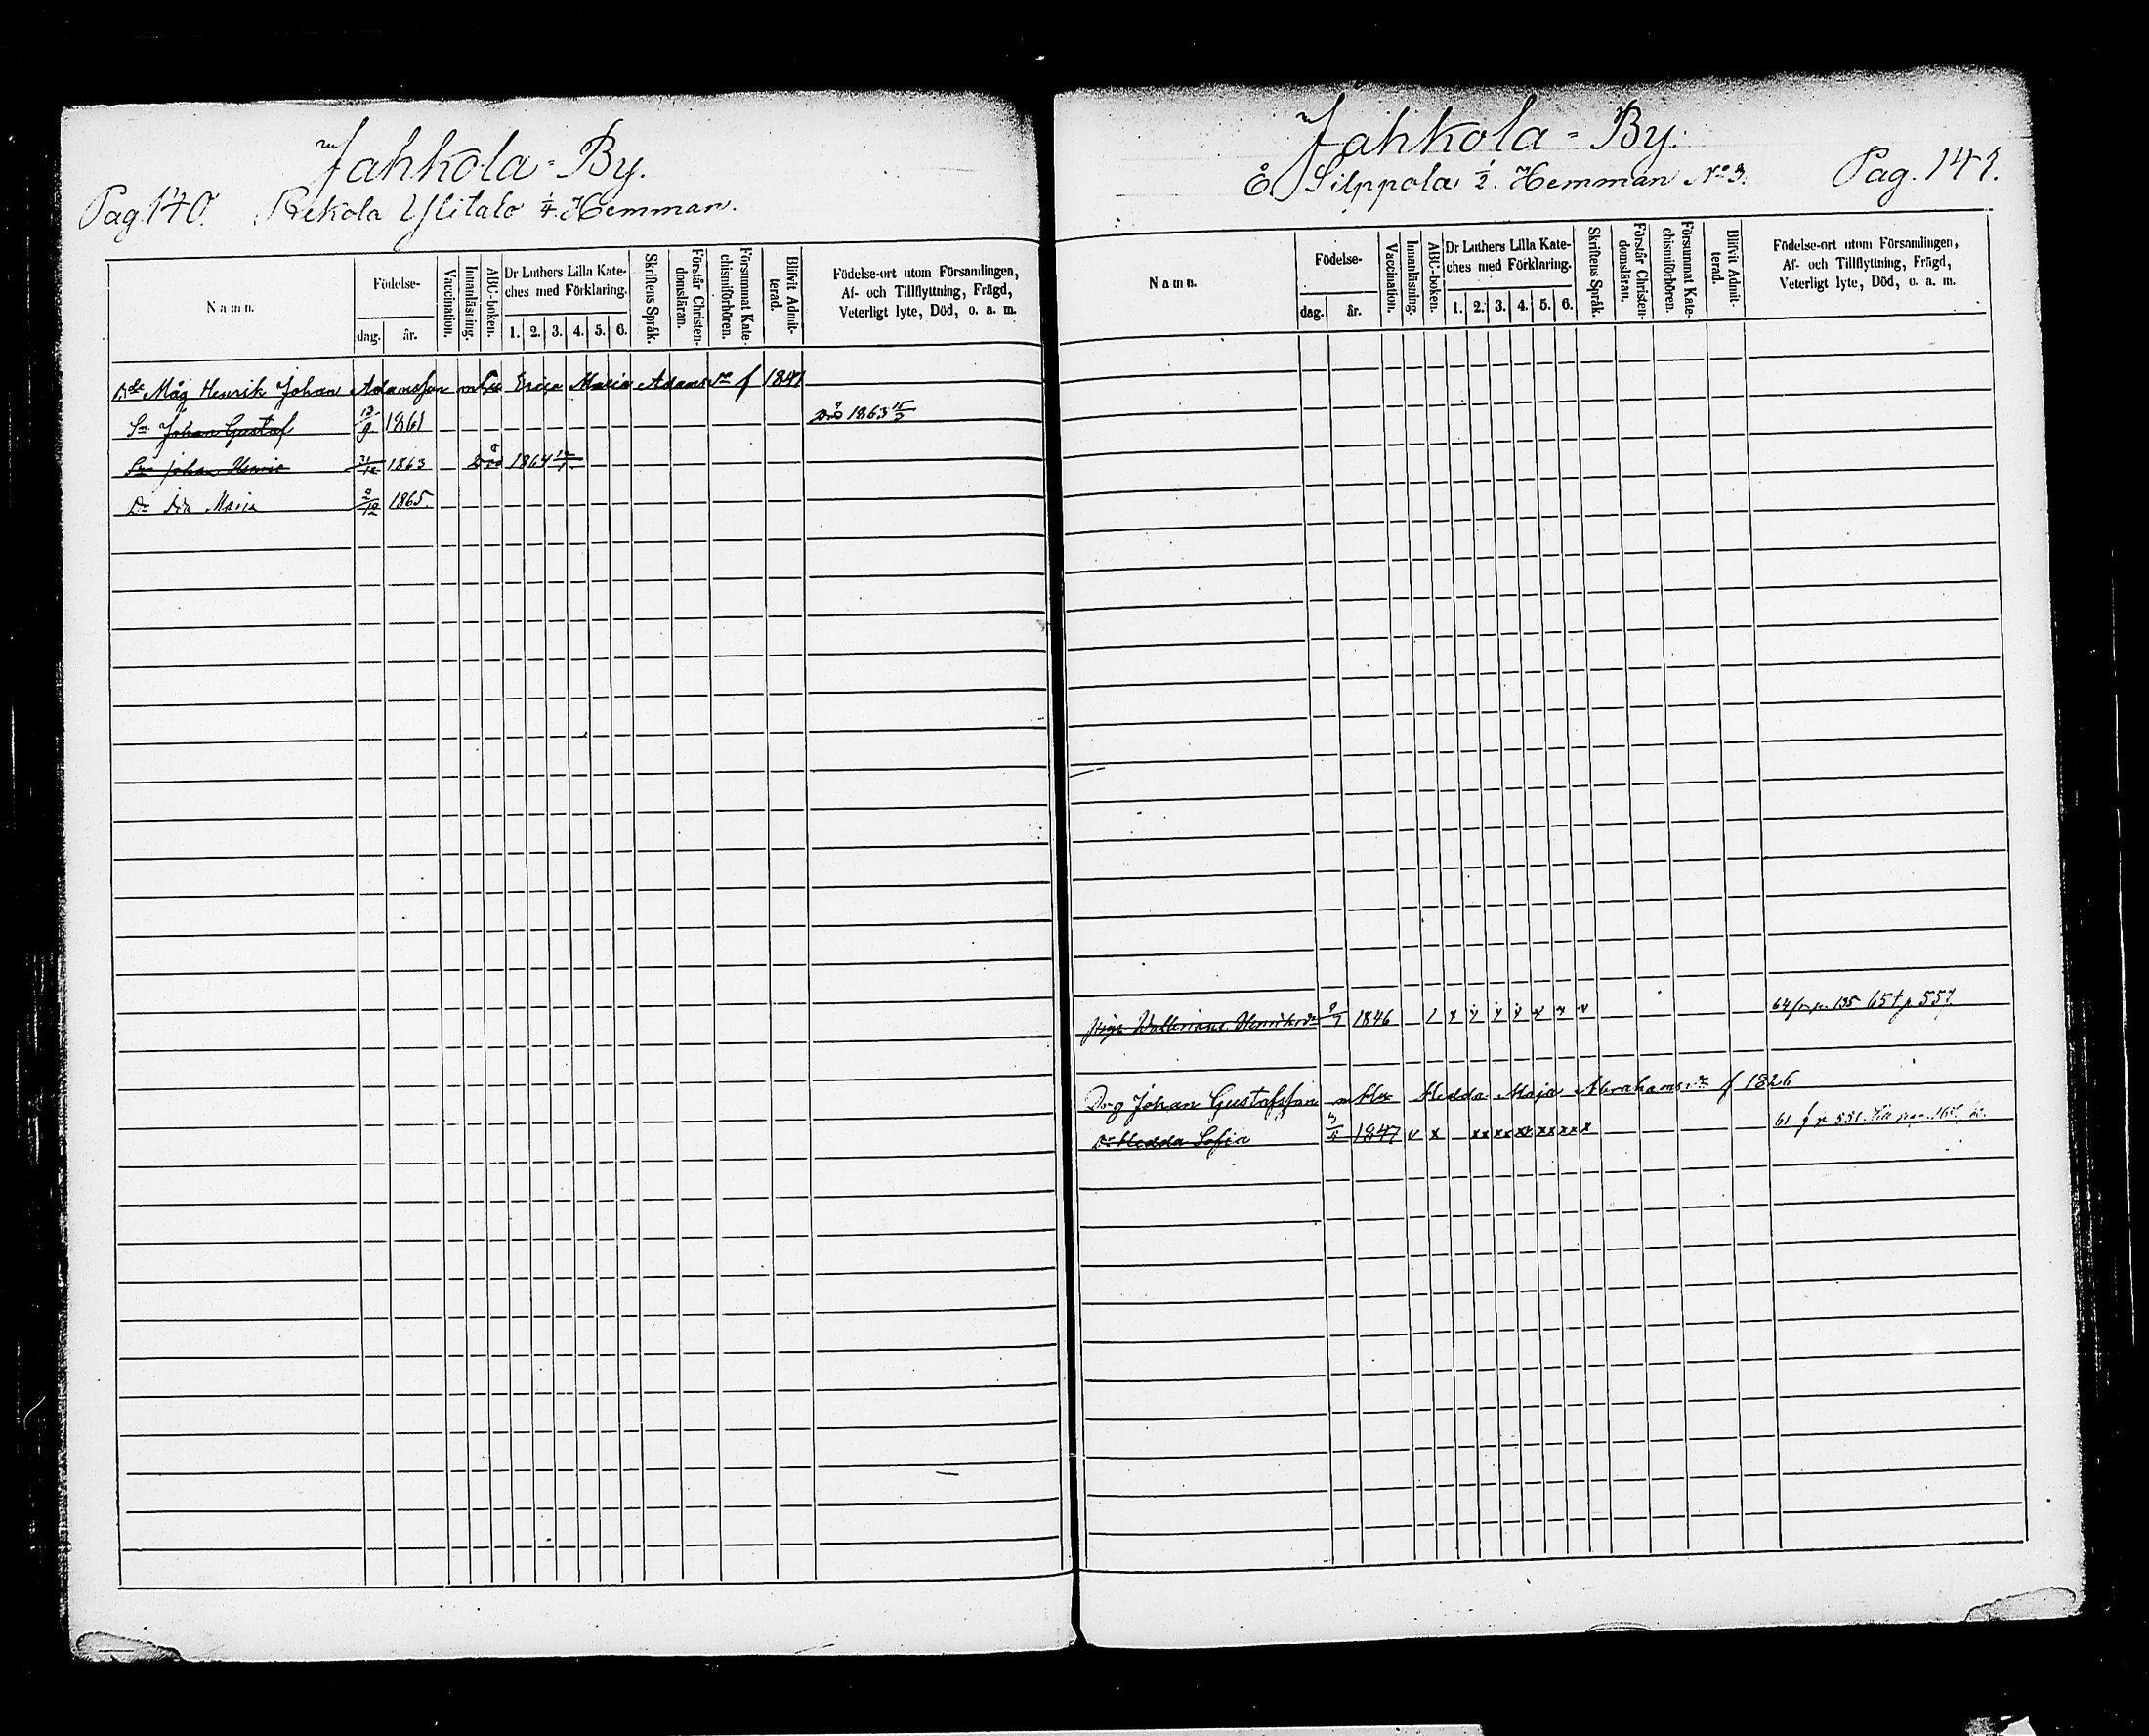 Jahkola=By.
Pag 140. Rekola Ylitalo 1/4 Hemman.
Namn.
Födelse-
dag.
år.
Vaccination.
Innanläsning.
ABC-boken.
Dr Luthers Lilla Kate-
ches med Förklaring.
1. 2. 3. 4. 5. 6.
Skriftens Språk.
Förstår Christen-
domsläran.
Försummat Kate-
chismiförhören.
Blifvit Admit-
terad.
Födelse-ort utom Församlingen,
Af- och Tillflyttning, Frägd,
Veterligt lyte, Död, o. a. m.
Måg Henrik Johan Adamsson m hu Erica Maria Adamsdr f 1841
Sn Johan Gustaf 1861 Död 1863 15/3
Sn Johan Henric 31/12 1863 Död 1864
Dr Ida Maria 2/12 1865.
Jahkola=By.
Silppola 1/2 Hemman No 3. Pag. 141.
Namn.
Födelse-
dag.
år.
Vaccination.
Innanläsning.
ABC-boken.
Dr Luthers Lilla Kate-
ches med Förklaring.
1. 2. 3. 4. 5. 6.
Skriftens Språk.
Förstår Christen-
domsläran.
Försummat Kate-
chismiförhören.
Blifvit Admit-
terad.
Födelse-ort utom Församlingen,
Af- och Tillflyttning, Frägd,
Veterligt lyte, Död, o. a. m.
Henriksdr 1846 64 fr p. 135 65 t p 557
Drg Johan Gustafsson m hu Hedda Maja Abrahamsdr f 1826
Dr Hedda Sofia 1847 v x xx xx xx xx xx x 61 f p 551.